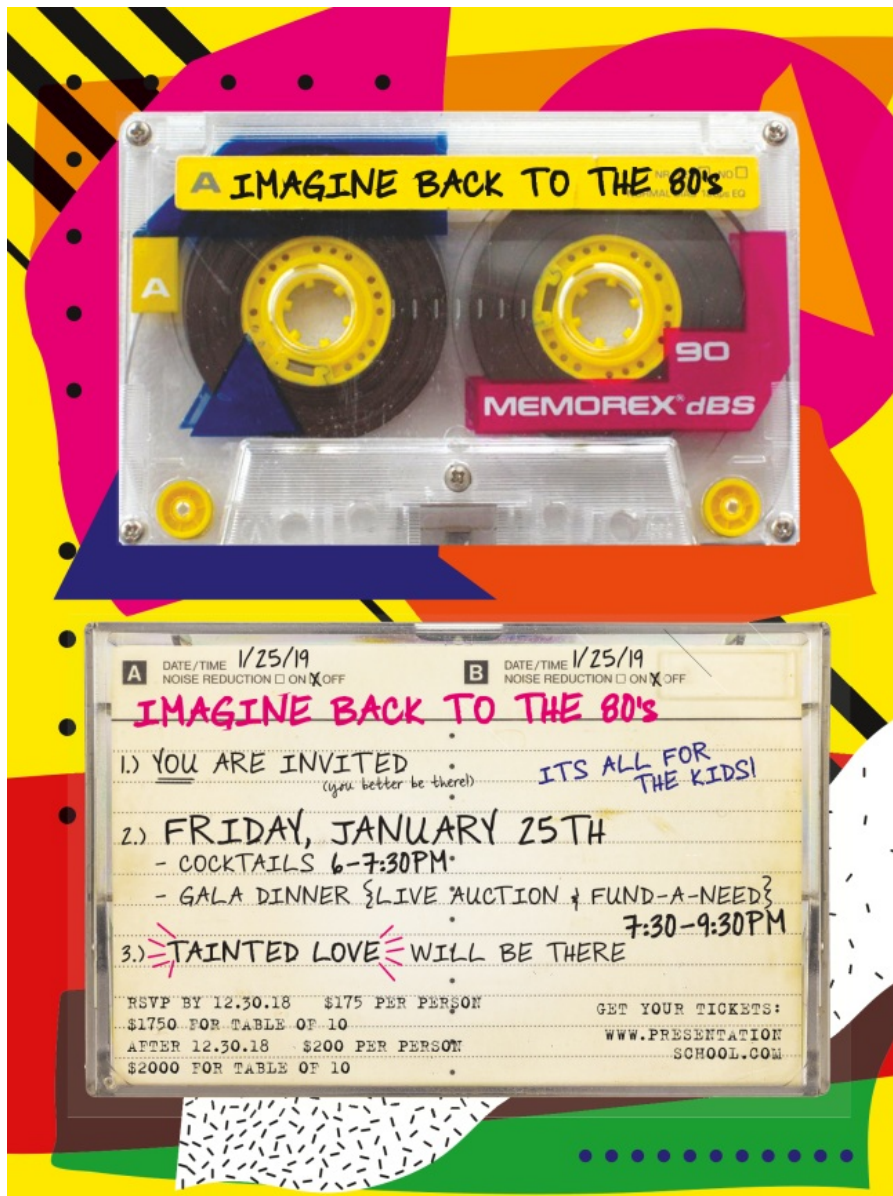 A IMAGINE BACK TO THE 80's
A
90
MEMOREX® dBS
A DATE/TIME 1/25/19 B DATE/TIME 1/25/19
NOISE REDUCTION □ ON ☒ OFF NOISE REDUCTION □ ON ☒ OFF
IMAGINE BACK TO THE 80's
1.) YOU ARE INVITED
(you better be there!)
ITS ALL FOR
THE KIDS!
2.) FRIDAY, JANUARY 25TH
- COCKTAILS 6-7:30PM
- GALA DINNER {LIVE AUCTION & FUND-A-NEED}
7:30-9:30PM
3.) TAINTED LOVE WILL BE THERE
RSVP BY 12.30.18 $175 PER PERSON
$1750 FOR TABLE OF 10
AFTER 12.30.18 $200 PER PERSON
$2000 FOR TABLE OF 10
GET YOUR TICKETS:
WWW.PRESENTATION
SCHOOL.COM